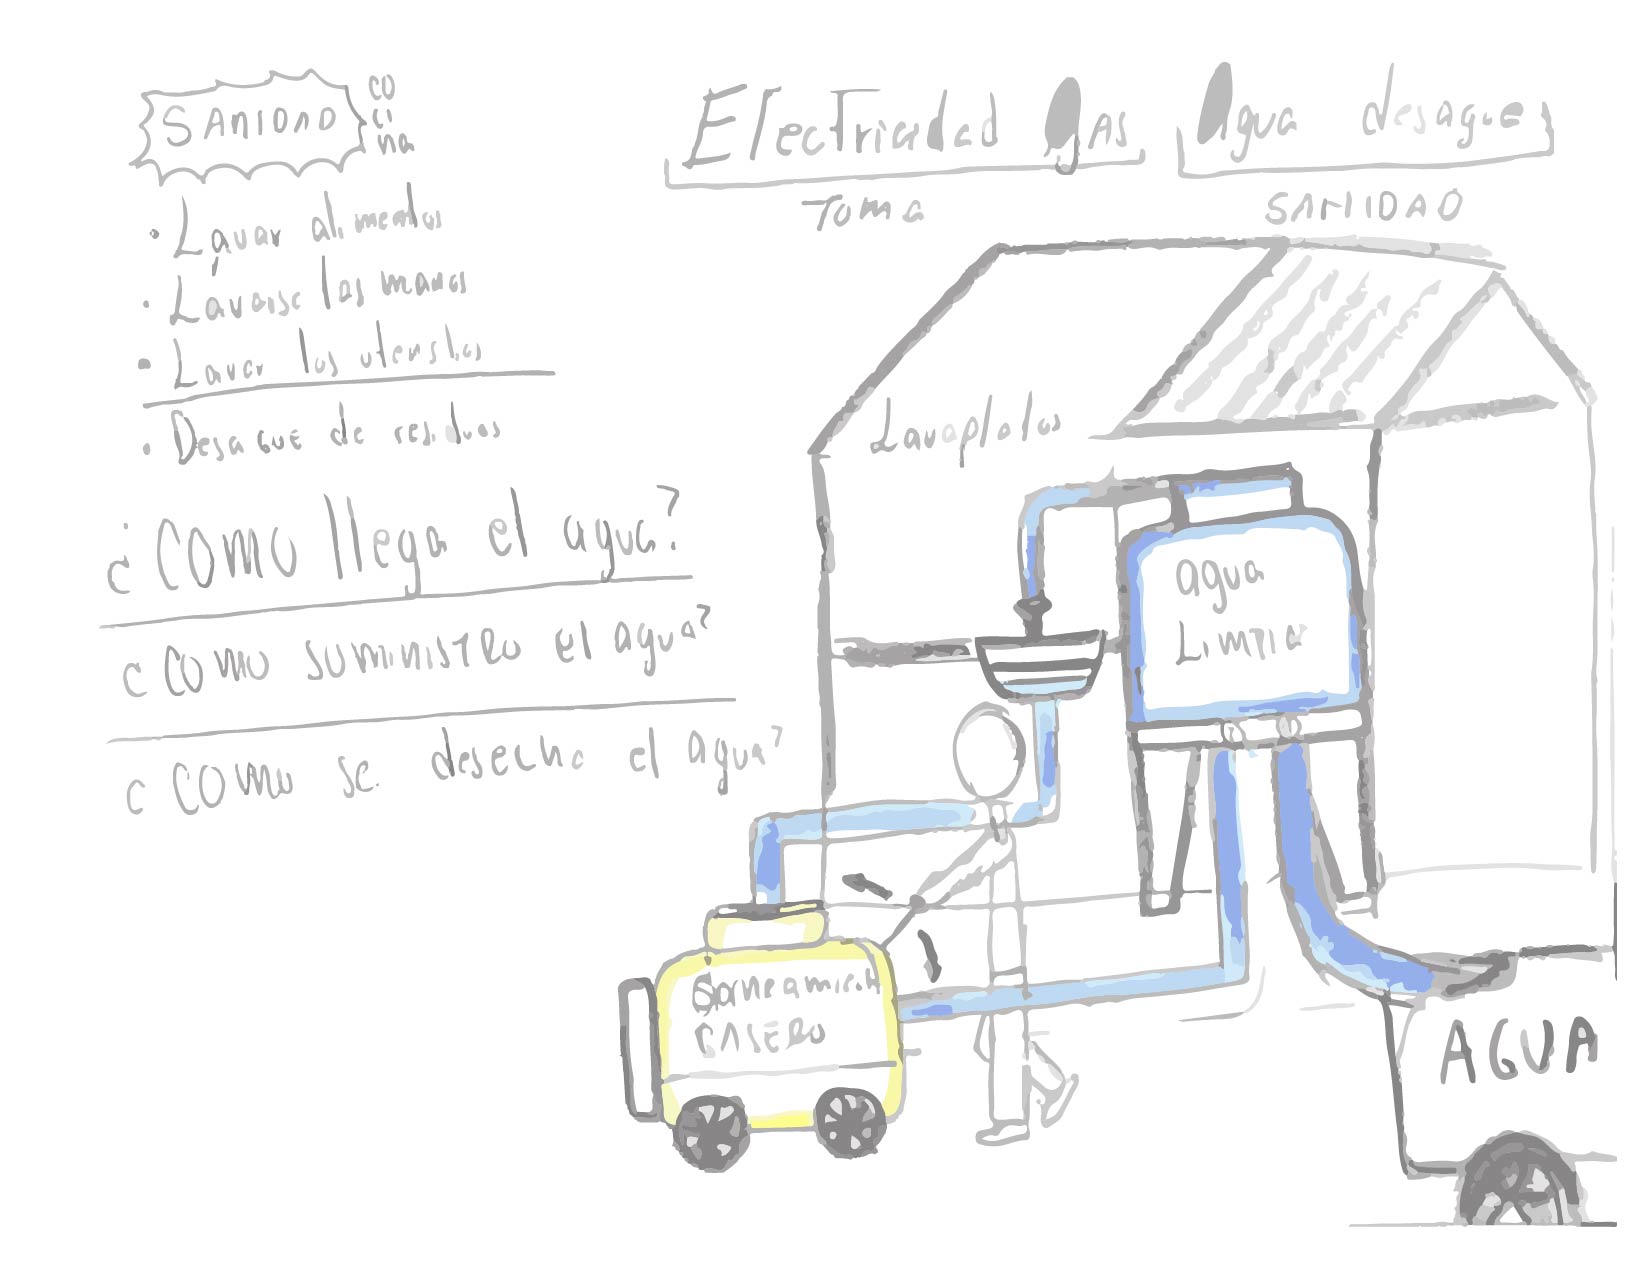 SANIDAD
CO
CI
na
• Lavar alimentos
• Lavarse las manos
• Lavar los utensilios
• Desague de residuos
¿Como llega el agua?
¿Como suministro el agua?
¿Como se desecha el agua?
Electricidad gas
Toma
Agua desague
SANIDAD
Lavaplatos
agua
Limpia
Saneamient
CASERO
AGUA